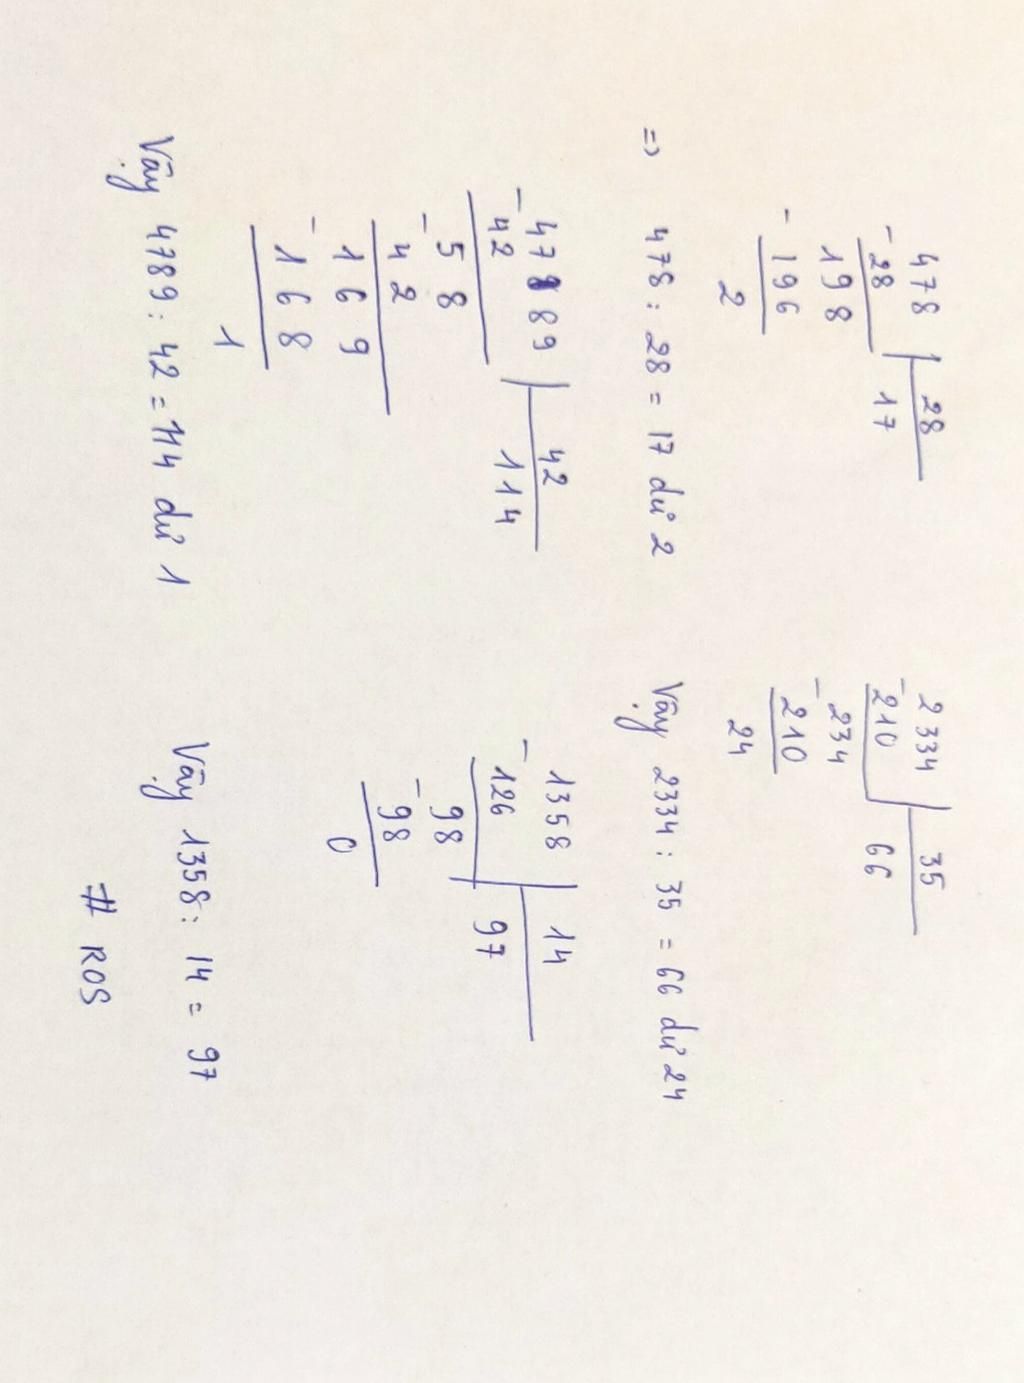 478 28
- 28 17
198
- 196
2
=> 478 : 28 = 17 dư 2
2334 35
- 210 66
- 234
210
24
Vậy 2334 : 35 = 66 dư 24
4789 42
- 42 114
- 58
42
169
- 168
1
Vậy 4789 : 42 = 114 dư 1
1358 14
- 126 97
98
- 98
0
Vậy 1358 : 14 = 97
# ROS